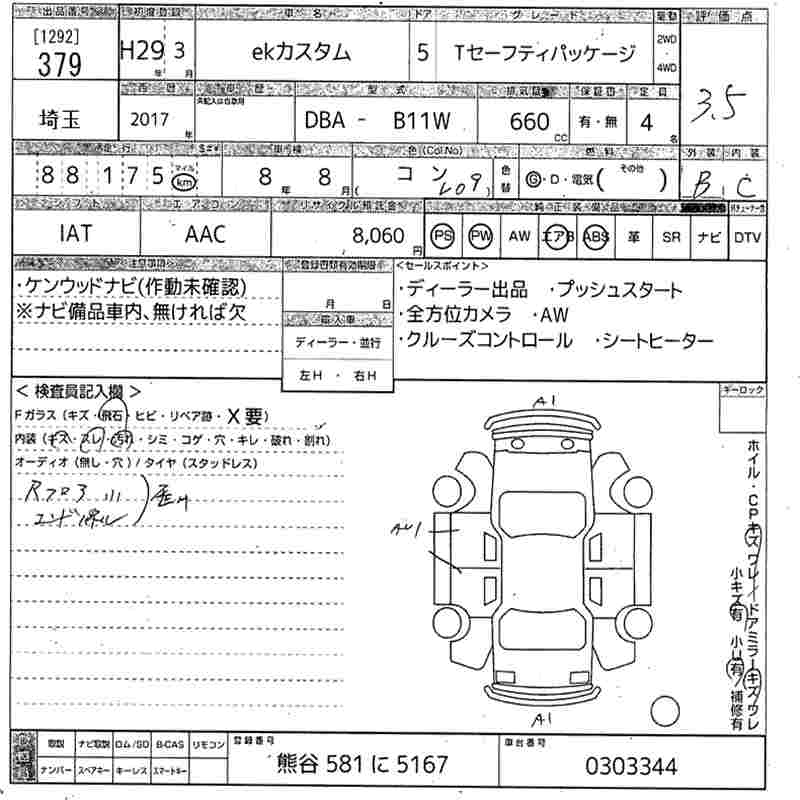 出品番号 初度登録 車名 ドア グレード 駆動 評価点
[1292]
379 H29年 3月 ekカスタム 5 Tセーフティパッケージ 2WD・4WD
3.5
西暦 車歴 型式 排気量 保証書 定員
埼玉 2017年 DBA - B11W 660cc 有・無 4名
走行 車検 色(Col.No) 燃料 その他 外装 内装
88175 マイル km 8年 8月 コン ( ) 色替 G・D・電気( ) B C
シフト エアコン リサイクル預託金 純正装備品
IAT AAC 8,060円 PS PW AW エアB ABS 革 SR ナビ DTV
注意事項 登録書類有効期限 <セールスポイント>
・ケンウッドナビ(作動未確認)
※ナビ備品車内、無ければ欠
月 日
輸入車
ディーラー・並行
左H・右H
・ディーラー出品 ・プッシュスタート
・全方位カメラ ・AW
・クルーズコントロール ・シートヒーター
<検査員記入欄>
Fガラス(キズ・飛石・ヒビ・リペア跡・X要)
内装(キズ・スレ・汚れ・シミ・コゲ・穴・キレ・破れ・割れ)
オーディオ(無し・穴)/タイヤ(スタッドレス)
キーロック
A1
A1
ホイル・CPキズワレ/ドアミラーキズワレ
小キズ有 小U有/補修有
取説 ナビ取説 ロム/SD B-CAS リモコン 登録番号 車台番号
ナンバー スペアキー キーレス スマートキー 熊谷 581 に 5167 0303344